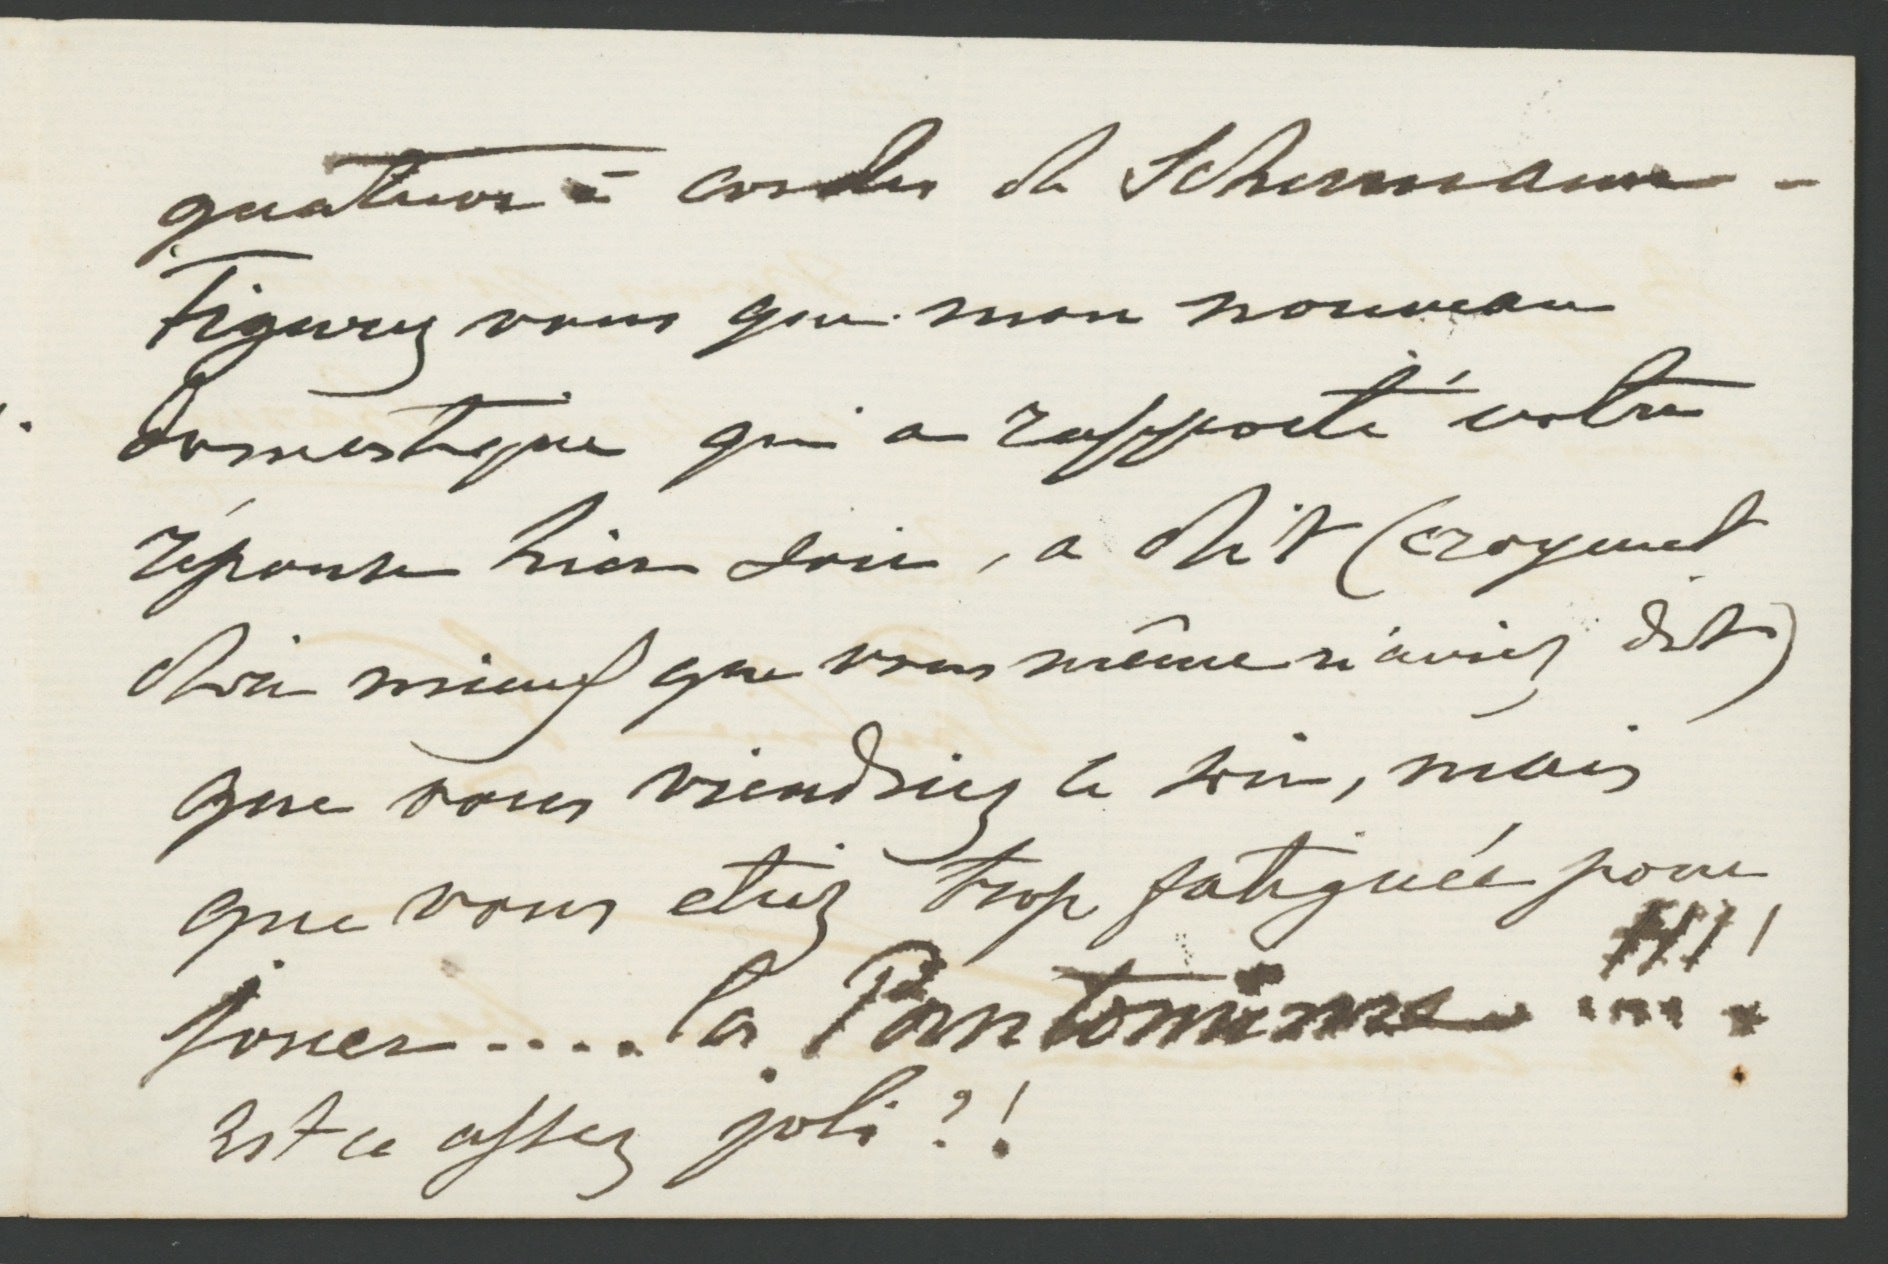 quatuor à cordes de Schumann -
Figurez vous que mon nouveau
domestique qui a rapporté votre
réponse hier soir, a dit (croyant
dire mieux que vous même n'aviez dit)
que vous viendriez le soir, mais
que vous etiez trop fatiguée pour
jouer..... la Pantomime !!!!
Est ce assez joli ?!